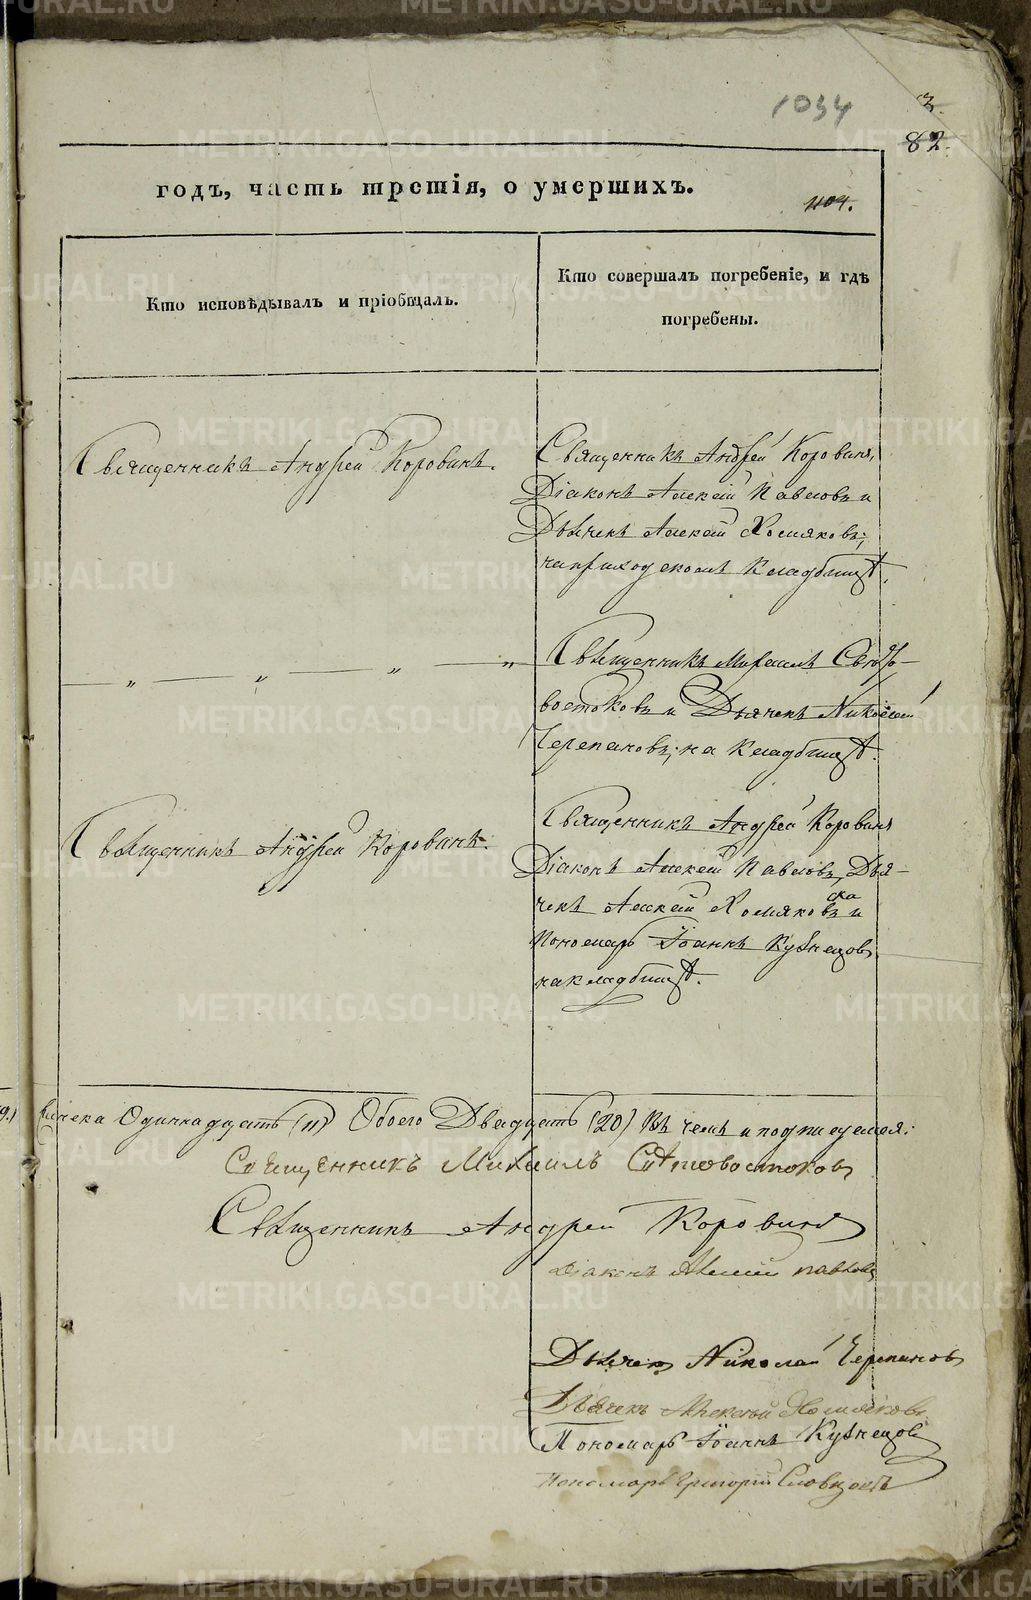 1034
3.
82.
годъ, часть третія, о умершихъ.
1104.
Кто исповѣдывалъ и пріобщалъ.
Кто совершалъ погребеніе, и гдѣ
погребены.
Священникъ Андрей Коровинъ.
Священникъ Андрей Коровинъ,
Діаконъ Алексій Павловъ и
Дьячекъ Алексѣй Хомяковъ;
на приходскомъ Кладбищѣ.
— „ — „ — „ — „
Священникъ Михаилъ Свѣто-
востоковъ и Дьячекъ Николай
Черепановъ; на Кладбищѣ.
Священникъ Андрей Коровинъ.
Священникъ Андрей Коровинъ
Діаконъ Алексій Павловъ, Дья-
чекъ Алексѣй Хомяковъ и
Пономарь Іоаннъ Кузнецовъ
на кладбищѣ.
Одиннадцать (11) Обоего Двадцать (20) Въ чемъ и подписуемся:
Священникъ Михаилъ Свѣтовостоковъ
Священникъ Андрей Коровинъ
Діаконъ Алексій Павловъ
Дьячекъ Николай Черепановъ
Дьячекъ Алексѣй Хомяковъ
Пономарь Іоаннъ Кузнецовъ
Пономарь Григорій Словцовъ
METRIKI.GASO-URAL.RU